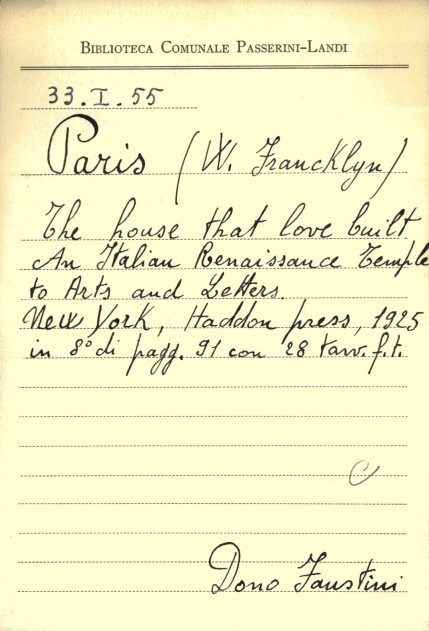 BIBLIOTECA COMUNALE PASSERINI-LANDI
33.I.55
Paris (W. Francklyn)
The house that love built
An Italian Renaissance Temple
to Arts and Letters.
New York, Haddon press, 1925
in 8° di pagg. 91 con 28 tavv. f.t.
C
Dono Faustini